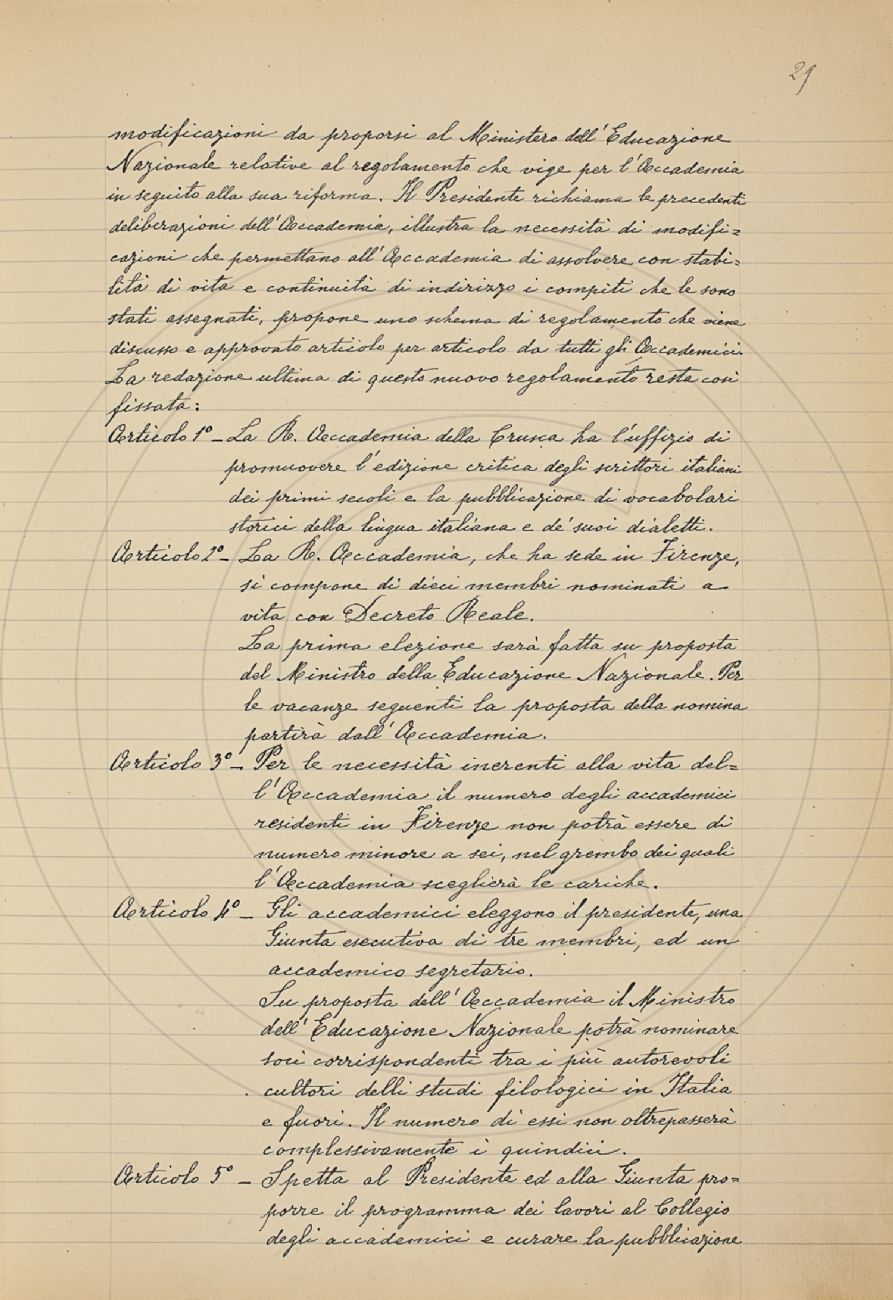 29
modificazioni da proporsi al Ministero dell'Educazione
Nazionale relative al regolamento che vige per l'Accademia
in seguito alla sua riforma. Il Presidente richiama le precedenti
deliberazioni dell'Accademia, illustra la necessità di modifi=
cazioni che permettano all'Accademia di assolvere con stabi=
lità di vita e continuità di indirizzo i compiti che le sono
stati assegnati, propone uno schema di regolamento che viene
discusso e approvato articolo per articolo da tutti gli Accademici.
La redazione ultima di questo nuovo regolamento resta così
fissata:
Articolo 1° - La R. Accademia della Crusca ha l'uffizio di
promuovere l'edizione critica degli scrittori italiani
dei primi secoli e la pubblicazione di vocabolari
storici della lingua italiana e de' suoi dialetti.
Articolo 2° - La R. Accademia, che ha sede in Firenze,
si compone di dieci membri nominati a
vita con Decreto Reale.
La prima elezione sarà fatta su proposta
del Ministro della Educazione Nazionale. Per
le vacanze seguenti la proposta della nomina
partirà dall'Accademia.
Articolo 3° - Per le necessità inerenti alla vita del=
l'Accademia il numero degli accademici
residenti in Firenze non potrà essere di
numero minore a sei, nel grembo dei quali
l'Accademia sceglierà le cariche.
Articolo 4° - Gli accademici eleggono il presidente, una
Giunta esecutiva di tre membri, ed un
accademico segretario.
Su proposta dell'Accademia il Ministro
dell'Educazione Nazionale potrà nominare
soci corrispondenti tra i più autorevoli
cultori delli studi filologici in Italia
e fuori. Il numero di essi non oltrepasserà
complessivamente i quindici.
Articolo 5° - Spetta al Presidente ed alla Giunta pro=
porre il programma dei lavori al Collegio
degli accademici e curare la pubblicazione